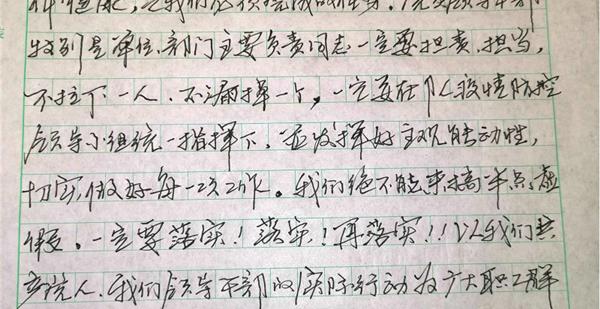 ,是我们必须完成的任务。各级领导干部
特别是单位、部门主要负责同志一定要担责、担当,
不拉下一人、不漏掉一个,一定要在队疫情防控
领导小组统一指挥下,並发挥好主观能动性,
切实做好每一项工作。我们绝不能来搞半点虚
假。一定要落实!落实!再落实!!以我们共
产党人、我们领导干部的实际行动为广大职工群